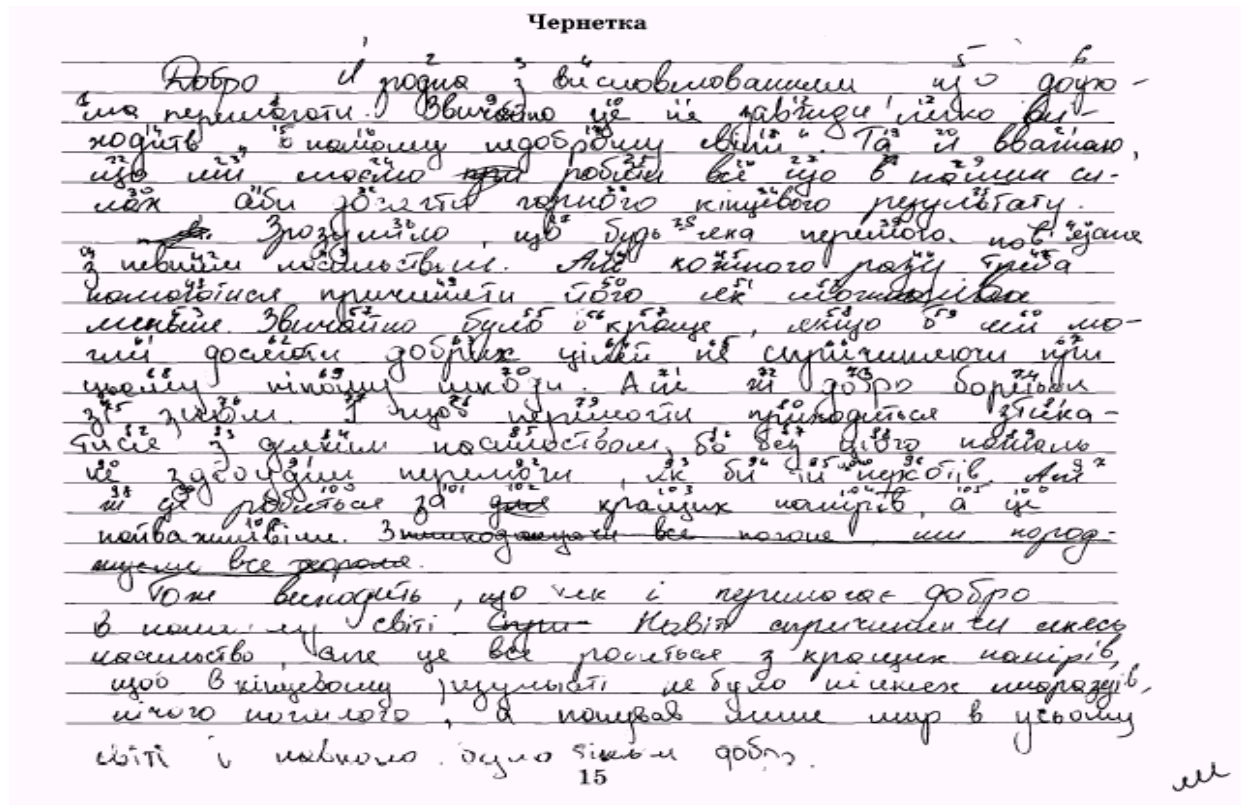 Чернетка
Добро Я згодна з висловлюваннями що добро
ма перемогати. Звичайно це не завжди легко ви-
ходить в нашому недоброму світі. Та я вважаю,
що ми маємо робити все що в наших си-
лах аби досягти гарного кінцевого результату.
Зрозуміло, що будь яка перемога пов'язана
з певним насильством. Але кожного разу треба
намагатися причиняти його як
меньше. Звичайно було б краще, якщо б ми мо-
гли досягати добрих цілей не спричиняючи при
цьому нікому шкоди. Але ж добро бореться
зі злом. І щоб перемогти приходиться стика-
тися з деяким насильством, бо без цього нажаль
не здобудеш перемоги, як би ти не хотів. Але
ж це робиться за для кращих намірів, а це
найважливіше. все погане, ми пород-
жуємо все
Тож виходить, що так і перемагає добро
в нашому світі. Навіть спричиняючи якесь
насильство, але це все робиться з кращих намірів,
щоб в кінцевому результаті не було ніяких
нічого погилого, а панував лише мир в усьому
світі і навколо було тільки добро.
15